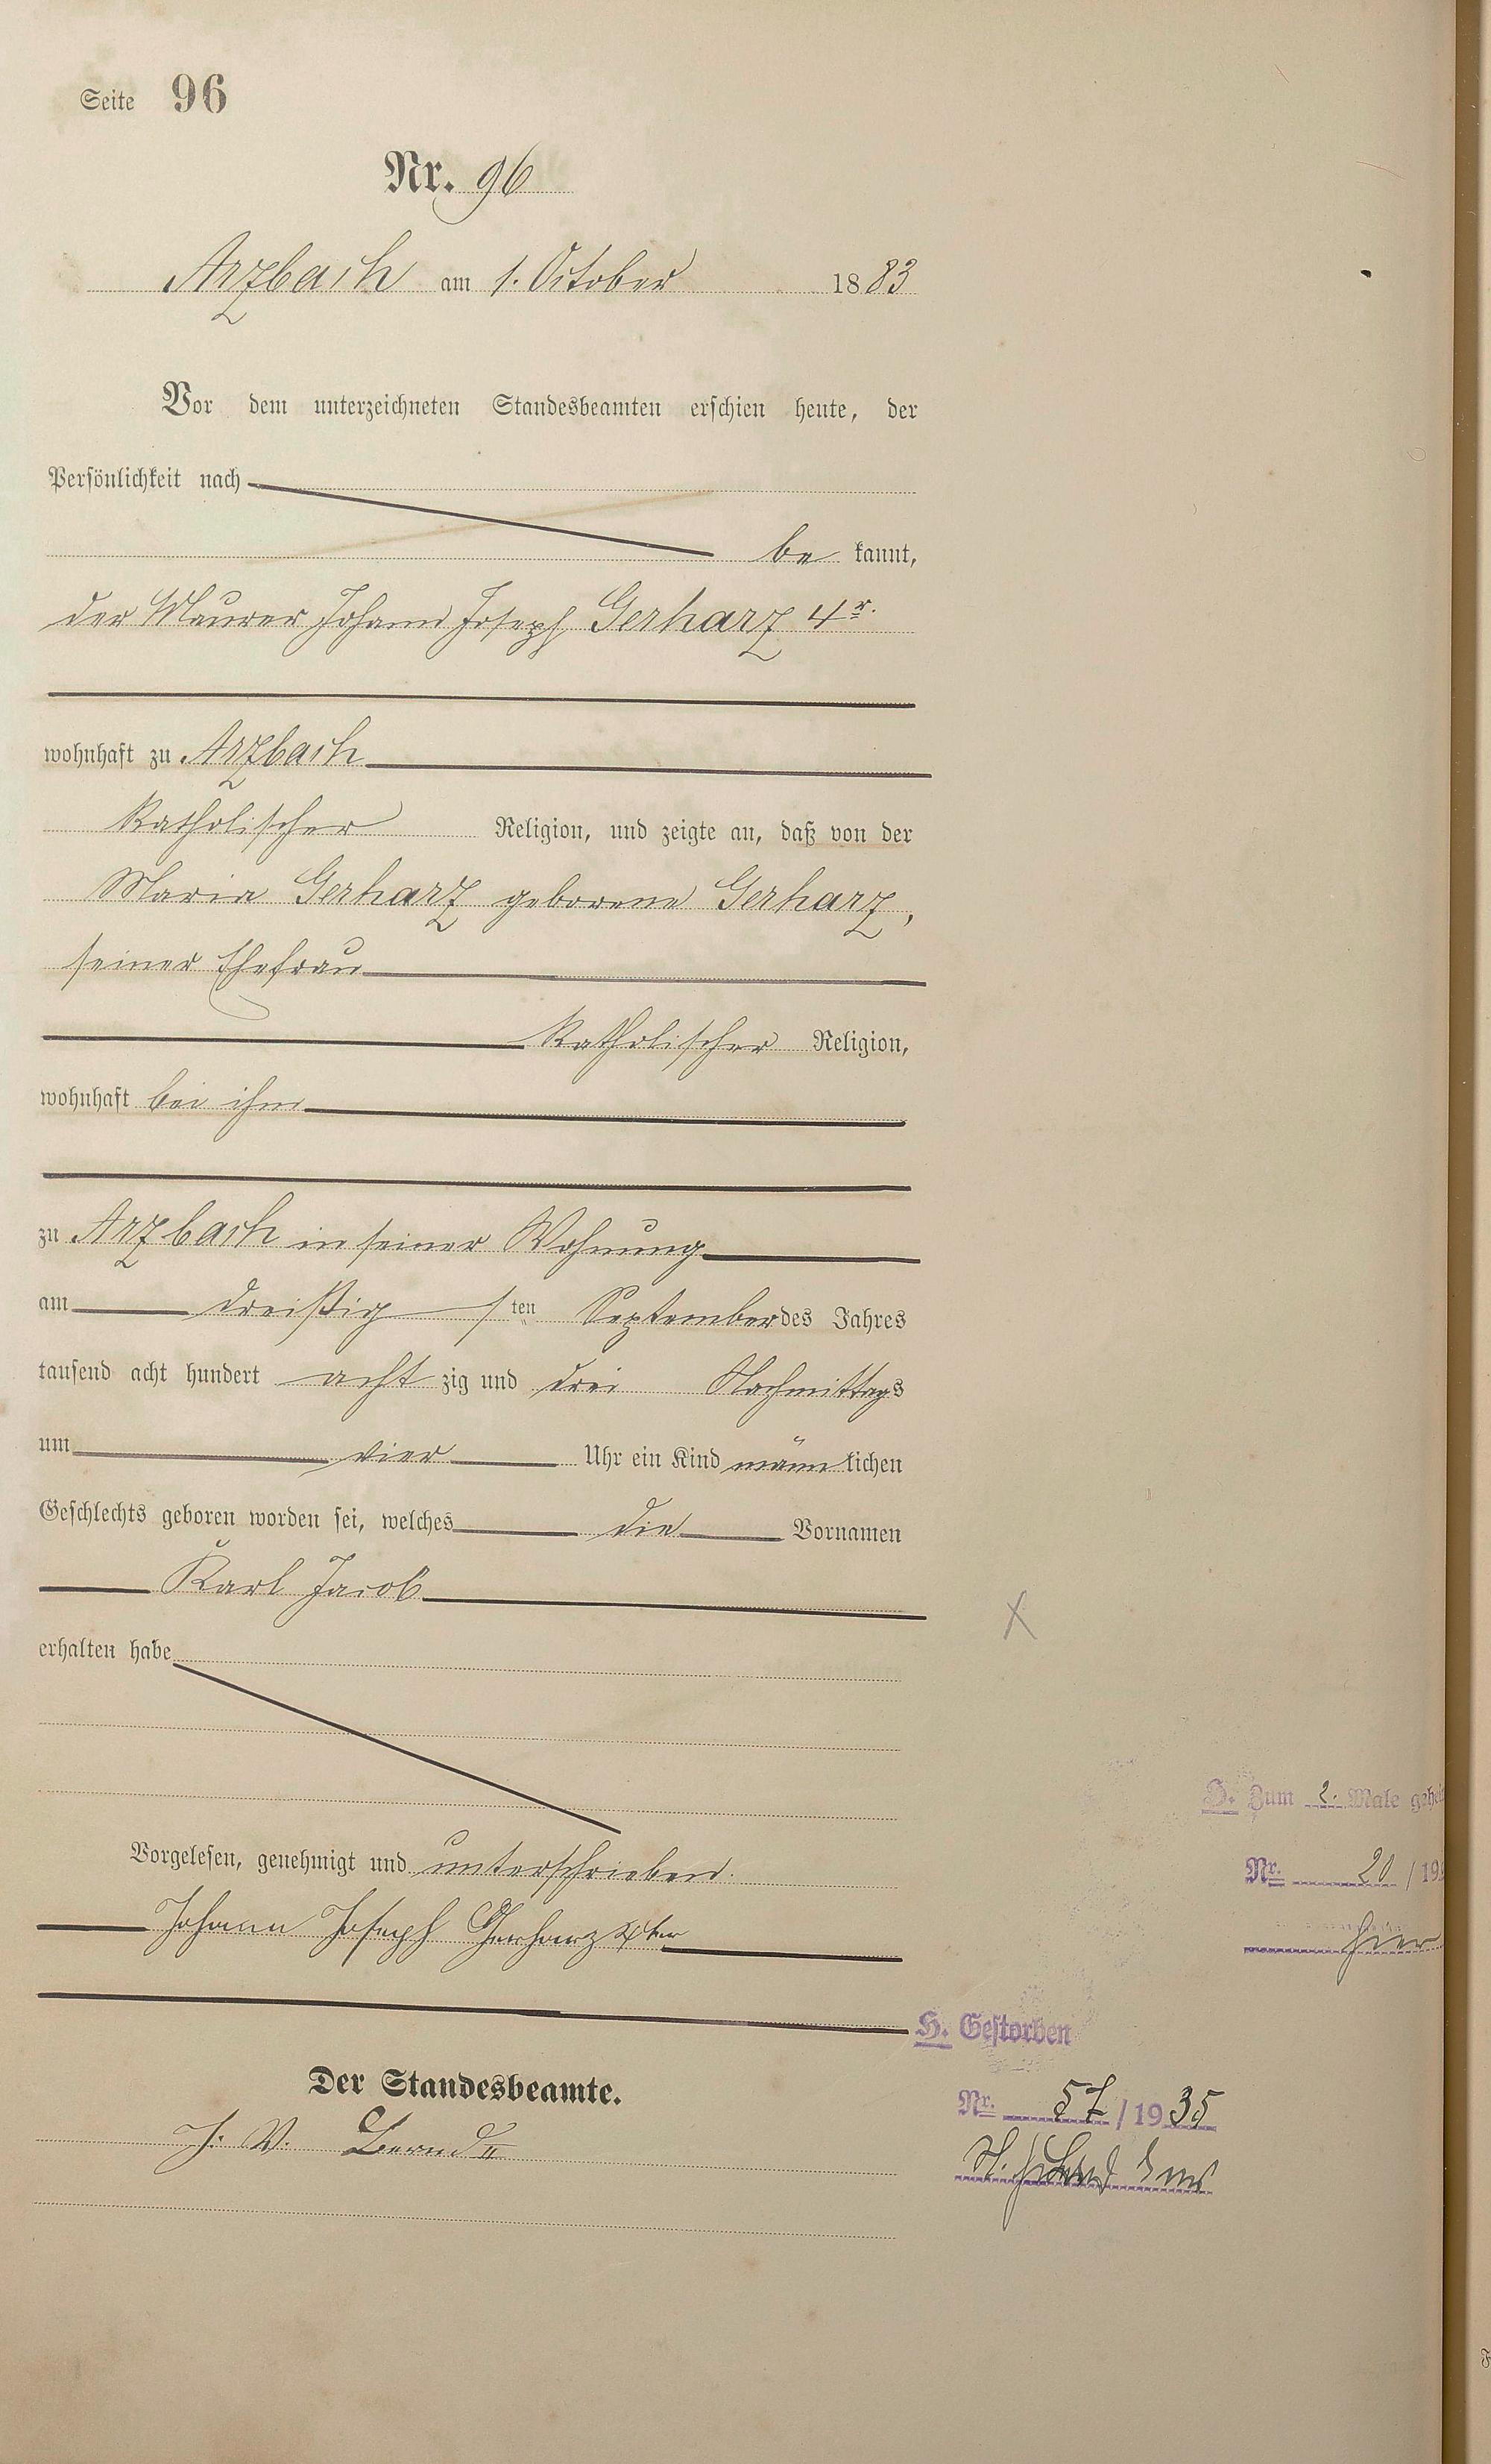 Seite 96
Nr. 96
Arzbach am 1. October 1883
Vor dem unterzeichneten Standesbeamten erschien heute, der
Persönlichkeit nach
be kannt,
der Maurer Johann Joseph Gerharz 4r.
wohnhaft zu Arzbach
katholischer Religion, und zeigte an, daß von der
Maria Gerharz geborene Gerharz,
seiner Ehefrau
katholischer Religion,
wohnhaft bei ihm
zu Arzbach in seiner Wohnung
am dreißig sten September des Jahres
tausend acht hundert acht zig und drei Nachmittags
um vier Uhr ein Kind männ lichen
Geschlechts geboren worden sei, welches die Vornamen
Karl Jacob
erhalten habe
Vorgelesen, genehmigt und unterschrieben.
Johann Joseph Gerharz 4ter
Der Standesbeamte.
J. V. Bernd
X
H. Zum 2. Male gehei
Nr. 20 / 19
hier
H. Gestorben
Nr. 57 / 1935
St. Ems